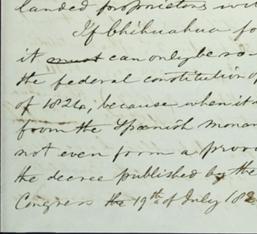 landed proprietors wi
If Chihuahua fo
it must can only be so
the federal constitution o
of 1824, because when it
from the Spanish monar
not even form a provi
the decree published by the
Congress the 19th of July 182